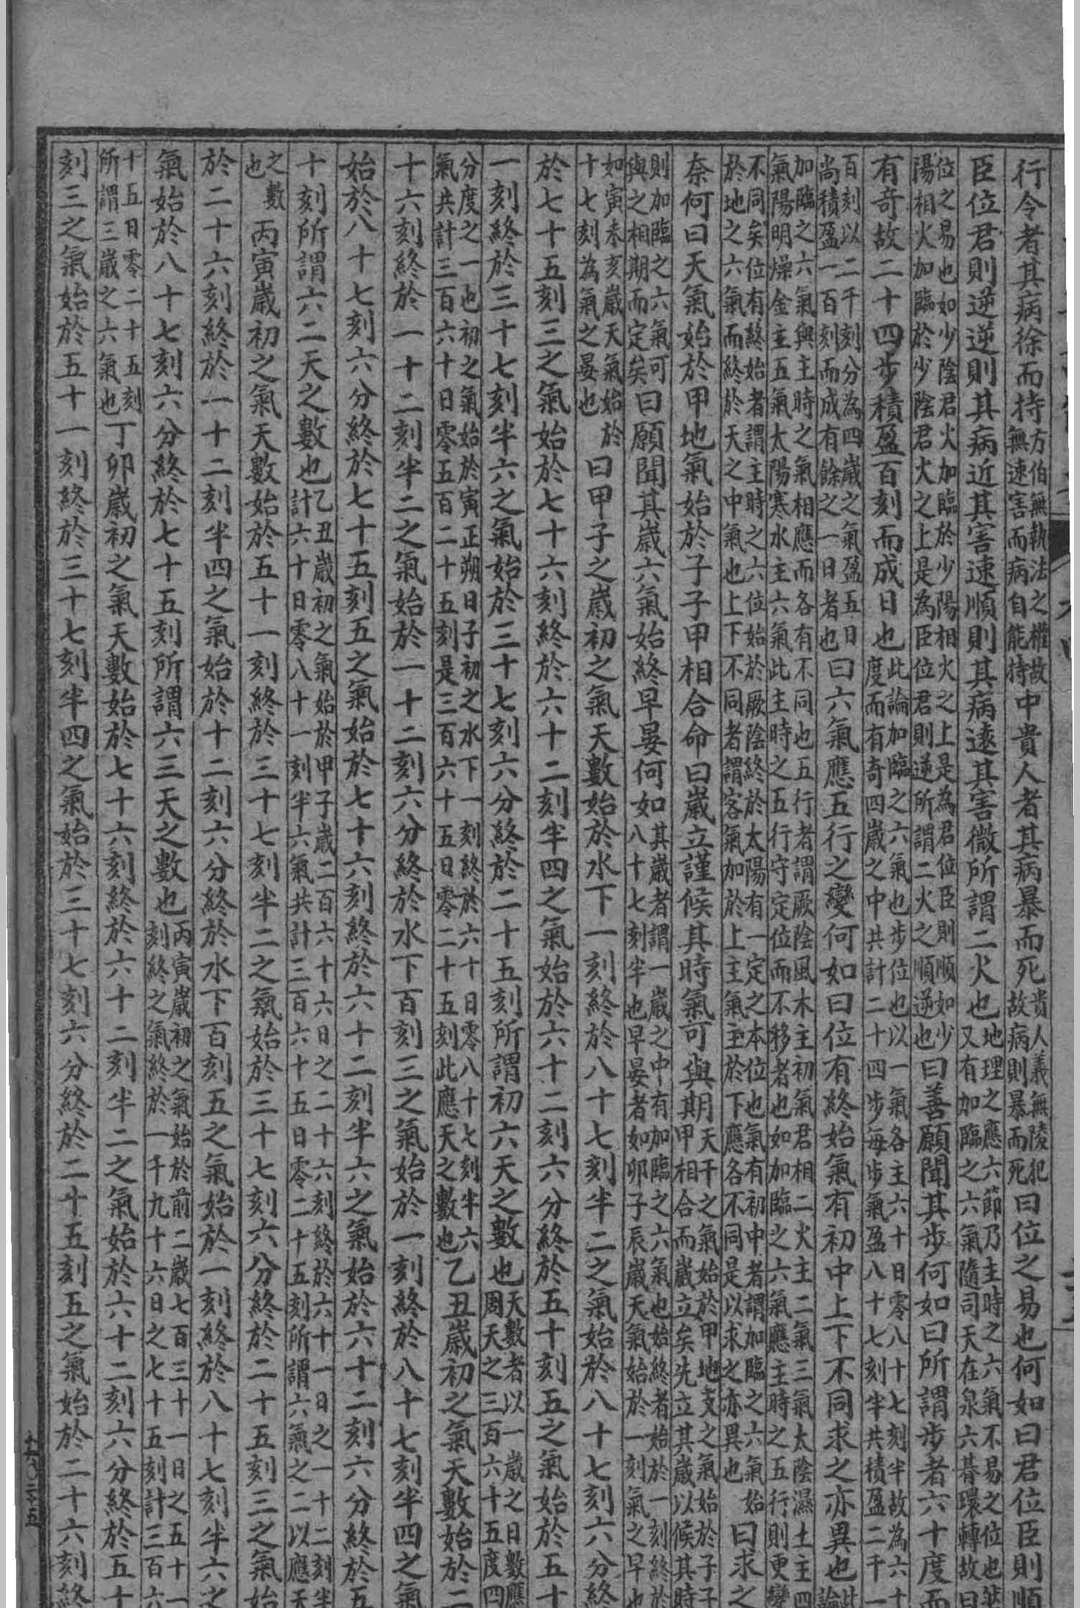 行令者其病徐而持方伯無執法之權故無速害而病自能持中貴人者其病暴而死貴人義無陵犯故病則暴而死曰位之易也何如曰君位臣則順
臣位君則逆逆則其病近其害速順則其病遠其害微所謂二火也地理之應六節乃主時之六氣不易之位也然又有加臨之六氣隨司天在泉六朞環轉故曰
位之易也如少陰君火加臨於少陽相火之上是為君位臣則順如少陽相火加臨於少陰君火之上是為臣位君則逆所謂二火之順逆也曰善願聞其步何如曰所謂步者六十度而
有奇故二十四步積盈百刻而成日也此論加臨之六氣也步位也以一氣各主六十日零八十七刻半故為六十度而有奇四歲之中共計二十四步每步氣盈八十七刻半共積盈二千一
百刻以二千刻分為四歲之氣盈五日尚積盈一百刻而成有餘之一日者也曰六氣應五行之變何如曰位有終始氣有初中上下不同求之亦異也此論
加臨之六氣與主時之氣相應而各有不同也五行者謂厥陰風木主初氣君相二火主二氣三氣太陰濕土主四氣陽明燥金主五氣太陽寒水主六氣此主時之五行守定位而不移者也如加臨之六氣應主時之五行則更變
不同矣位有終始者謂主時之六位始於厥陰終於太陽有一定之本位也氣有初中者謂加臨之六氣始於地之六氣而終於天之中氣也上下不同者謂客氣加於上主氣主於下應各不同是以求之亦異也曰求之
奈何曰天氣始於甲地氣始於子子甲相合命曰歲立謹候其時氣可與期天干之氣始於甲地支之氣始於子子甲相合而歲立矣先立其歲以候其時
則加臨之六氣可與之相期而定矣曰願聞其歲六氣始終早晏何如其歲者謂一歲之中有加臨之六氣也始終者始於一刻終於八十七刻半也早晏者如卯子辰歲天氣始於一刻氣之早也
如寅未亥歲天氣始於十七刻為氣之晏也曰甲子之歲初之氣天數始於水下一刻終於八十七刻半二之氣始於八十七刻六分終
於七十五刻三之氣始於七十六刻終於六十二刻半四之氣始於六十二刻六分終於五十刻五之氣始於五十
一刻終於三十七刻半六之氣始於三十七刻六分終於二十五刻所謂初六天之數也天數者以一歲之日數應周天之三百六十五度四
分度之一也初之氣始於寅正朔日子初之水下一刻終於六十日零八十七刻半六氣共計三百六十日零五百二十五刻是三百六十五日零二十五刻此應天之數也乙丑歲初之氣天數始於二
十六刻終於一十二刻半二之氣始於一十二刻六分終於水下百刻三之氣始於一刻終於八十七刻半四之氣
始於八十七刻六分終於七十五刻五之氣始於七十六刻終於六十二刻半六之氣始於六十二刻六分終於五
十刻所謂六二天之數也乙丑歲初之氣始於甲子歲二百六十六日之二十六刻終於六十一日之一十二刻半計六十日零八十一刻半六氣共計三百六十五日零二十五刻所謂六氣之二以應天
之數也丙寅歲初之氣天數始於五十一刻終於三十七刻半二之氣始於三十七刻六分終於二十五刻三之氣始
於二十六刻終於一十二刻半四之氣始於十二刻六分終於水下百刻五之氣始於一刻終於八十七刻半六之
氣始於八十七刻六分終於七十五刻所謂六三天之數也丙寅歲初之氣始於前二歲七百三十一日之五十一刻終之氣終於一千九十六日之七十五刻計三百六
十五日零二十五刻所謂三歲之六氣也丁卯歲初之氣天數始於七十六刻終於六十二刻半二之氣始於六十二刻六分終於五十
刻三之氣始於五十一刻終於三十七刻半四之氣始於三十七刻六分終於二十五刻五之氣始於二十六刻終